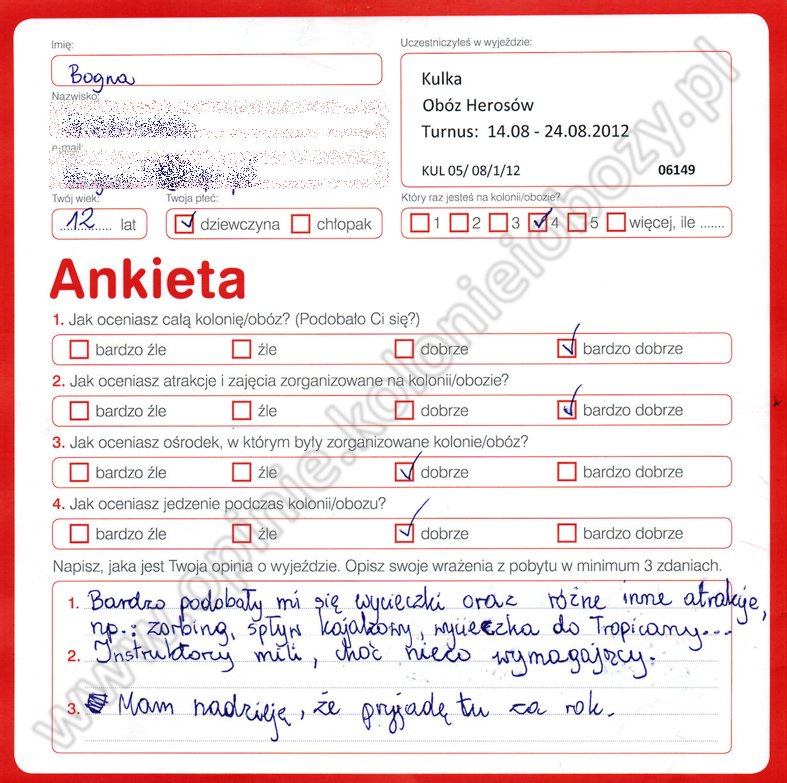 Imię:
Bogna
Nazwisko:
e-mail:
Twój wiek:
12 lat
Twoja płeć:
dziewczyna chłopak
Uczestniczyłeś w wyjeździe:
Kulka
Obóz Herosów
Turnus: 14.08 - 24.08.2012
KUL 05/ 08/1/12 06149
Który raz jesteś na kolonii/obozie?
1 2 3 4 5 więcej, ile .......
Ankieta
1. Jak oceniasz całą kolonię/obóz? (Podobało Ci się?)
bardzo źle źle dobrze bardzo dobrze
2. Jak oceniasz atrakcje i zajęcia zorganizowane na kolonii/obozie?
bardzo źle źle dobrze bardzo dobrze
3. Jak oceniasz ośrodek, w którym były zorganizowane kolonie/obóz?
bardzo źle źle dobrze bardzo dobrze
4. Jak oceniasz jedzenie podczas kolonii/obozu?
bardzo źle źle dobrze bardzo dobrze
Napisz, jaka jest Twoja opinia o wyjeździe. Opisz swoje wrażenia z pobytu w minimum 3 zdaniach.
1. Bardzo podobały mi się wycieczki oraz różne inne atrakcje,
np.: zorbing, spływ kajakowy, wycieczka do Tropicany...
2. Instruktorzy mili, choć nieco wymagający.
3. Mam nadzieję, że przyjadę tu za rok.
www.opinie.kolonieiobozy.pl